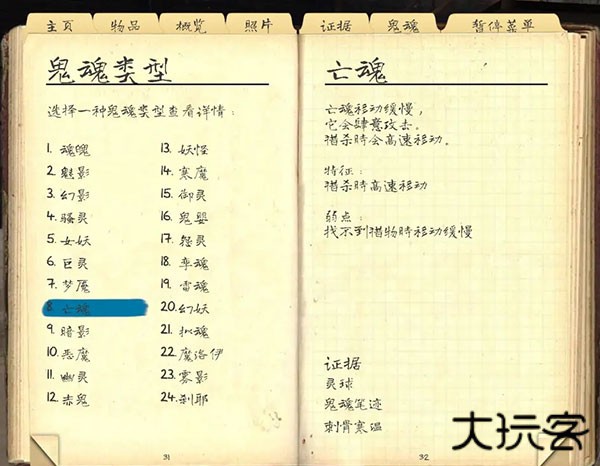 主页 物品 概览 照片 证据 鬼魂 暂停菜单
鬼魂类型
选择一种鬼魂类型查看详情：
1. 魂魄
2. 魅影
3. 幻影
4. 骚灵
5. 女妖
6. 巨灵
7. 梦魇
8. 亡魂
9. 暗影
10. 恶魔
11. 幽灵
12. 赤鬼
13. 妖怪
14. 寒魔
15. 御灵
16. 鬼婴
17. 怨灵
18. 孪魂
19. 雷魂
20. 幻妖
21. 拟魂
22. 魔洛伊
23. 雾影
24. 刹耶
31
亡魂
亡魂移动缓慢，
它会肆意攻击。
猎杀時会高速移动。
特征：
猎杀時高速移动
弱点：
找不到猎物時移动缓慢
证据
灵球
鬼魂笔迹
刺骨寒温
32
大玩客